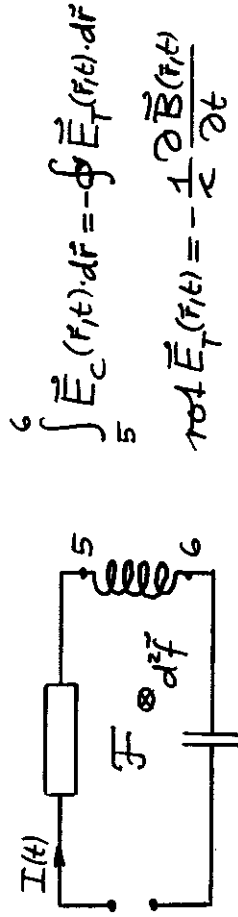 I(t)
5
F ⊗ d²f⃗
6
∫₅⁶ E⃗_C(r⃗,t)·dr⃗ = -∮ E⃗_T(r⃗,t)·dr⃗
rot E⃗_T(r⃗,t) = - 1/c ∂B⃗(r⃗,t)/∂t